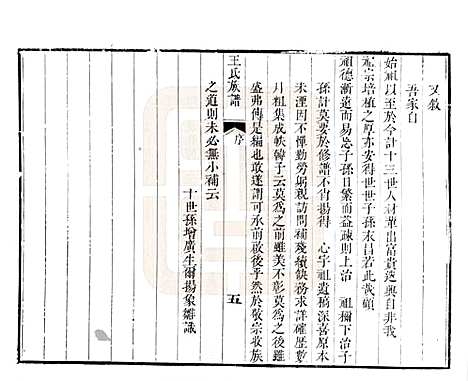 又敘
吾家自
始祖以至於今計十三世人材輩出富貴遠興自非我
祖宗培植之厚亦安得世世子孫永昌若此哉顧
祖德漸遠而易忘子孫日繁而益疎則上治祖禰下治子
孫計莫要於修譜不肖揚得心宇祖遺稿深喜原本
未湮因不憚勤勞躬親訪問補殘續缺務求詳確歷數
月粗集成帙韓子云莫爲之前雖美不彰莫爲之後雖
盛弗傳是編也敢謂可承前啟後乎然於敬宗收族
之道則未必無小補云
十世孫增廣生爾揚象雛識
王氏族譜
序
五